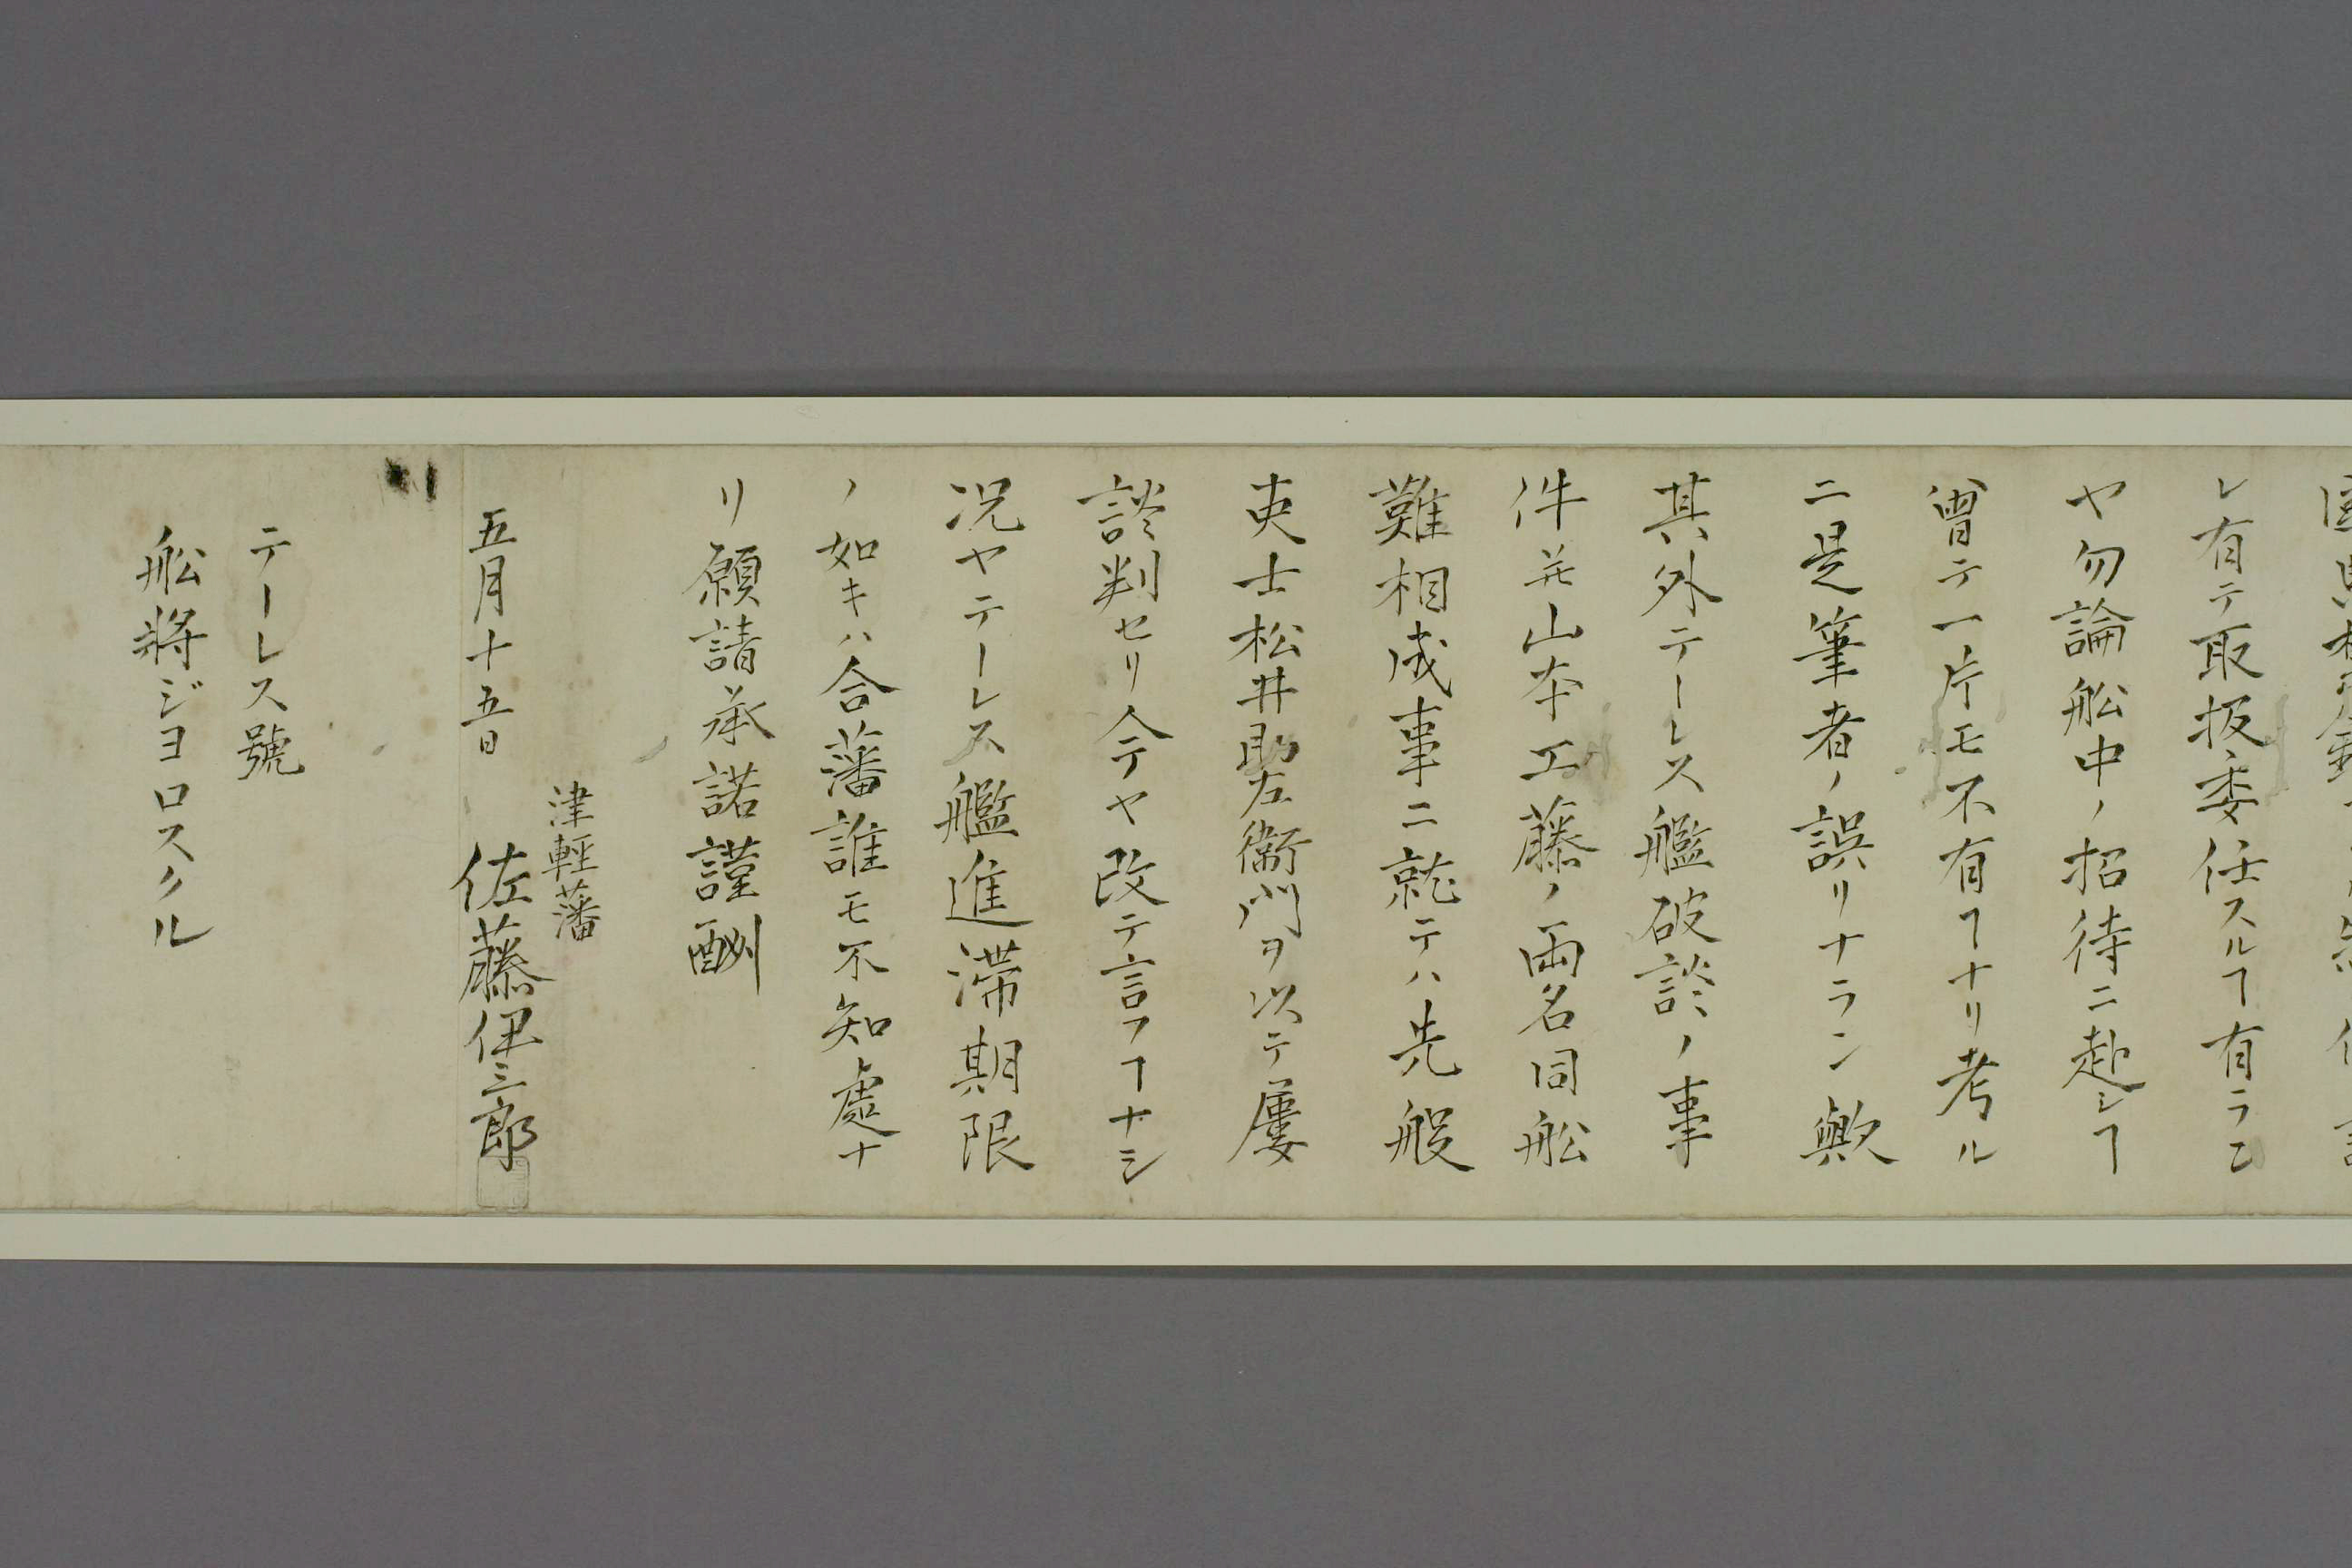 レ有テ取扱委任スルヿ有ラン
ヤ勿論舩中ノ招待ニ赴シヿ
曽テ一片モ不有ヿナリ考ル
ニ是筆者ノ誤リナラン歟
其外テーレス艦破談ノ事
件并山本工藤ノ両名同舩
難相成事ニ就テハ先般
吏士松井助左衛門ヲ以テ屢
談判セリ今テヤ改テ言フヿナシ
況ヤテーレス艦進滞期限
ノ如キハ合藩誰モ不知處ナ
リ願請承諾謹酬
津輕藩
五月十五日 佐藤伊三郎
テーレス號
舩將ジヨロスクル